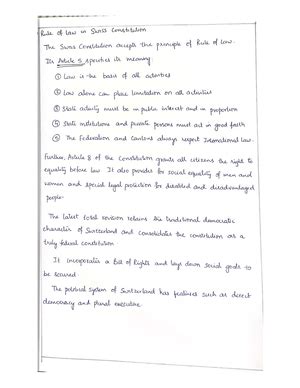 Rule of law in Swiss Constitution
The Swiss Constitution accepts the principle of Rule of Law.
Its Article 5 specifies its meaning.
① Law is the basis of all activities
② Law alone can place limitation on all activities
③ State activity must be in public interest and in proportion
④ State institutions and private persons must act in good faith
⑤ The Federation and Cantons always respect International law.
Further, Article 8 of the Constitution grants all citizens the right to
equality before law. It also provides for social equality of men and
women and special legal protection for disabled and disadvantaged
people.
The latest total revision retains the traditional democratic
character of Switzerland and consolidates the constitution as a
truly federal constitution
It incorporates a Bill of Rights and lays down social goals to
be secured
The political system of Switzerland has features such as direct
democracy and plural executive.